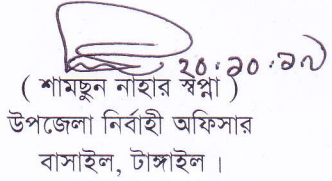 ২০.১০.১৭
( শামছুন নাহার স্বপ্না )
উপজেলা নির্বাহী অফিসার
বাসাইল, টাঙ্গাইল ।